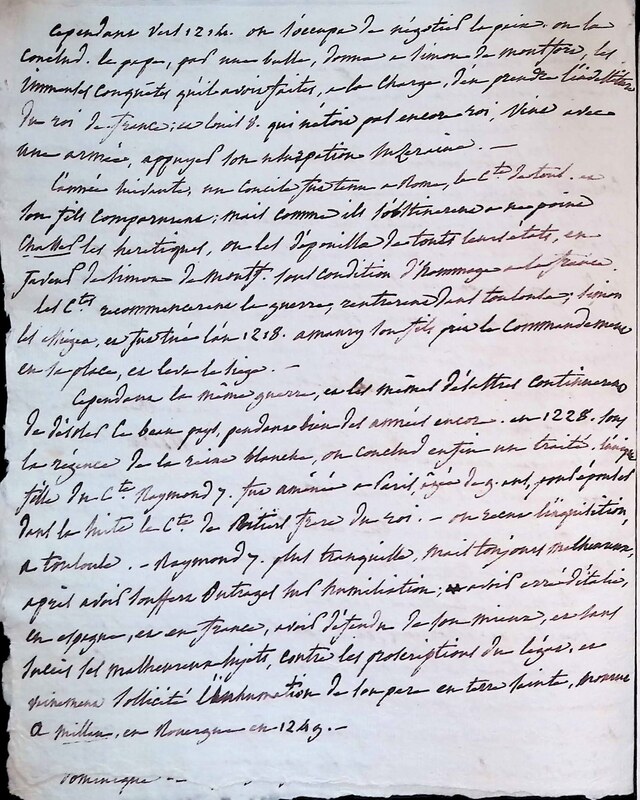 Cependant vers 1214. on s'occupa de négotier la paix. on la
conclud. le pape, par une bulle, donna a simon de montfort, les
immenses conquetes qu'il avoit faites, a la charge, d'en prendre l'investiture
du roi de france; et louis 8. qui n'étoit pas encore roi, vint avec
une armée, appuyer son usurpation
l'année suivante, un concile fut tenu a Rome, le Cte de toul. et
son fils comparurent; mais comme ils s'obstinerent a ne point
Chasser les heretiques, on les dépouilla de touts leurs etats, en
faveur de simon de Montf. sous condition d'hommage a la france.
les Ctes recommencerent la guerre, rentrerent dans toulouse; simon
les assiegea, et fut tué l'an 1218. amaury son fils prit le Commandement
en sa place, et leva le siege. —
Cependant la même guerre, et les mêmes désastres continuerent
de désoler ce beau pays, pendant bien des années encor. en 1228. sous
la régence de la reine blanche, on conclud enfin un traité, l'unique
fille du Cte Raymond 7. fut amenée a Paris, agée de 9. ans, pour épouser
dans la suite le Cte de Poitiers frere du roi. — on recut l'inquisition,
a toulouse. — Raymond 7. plus tranquille, mais toujours malheureux,
après avoir souffert Outrages sur humiliation; avoir erré d'italie,
en espagne, et en france, avoir défendu de son mieux, et sans
succès ses malheureux sujets, contre les proscriptions du légat, et
vainement sollicité l'inhumation de son pere en terre sainte, mourut
a millau, en Rouergue en 1249. —
Dominique --